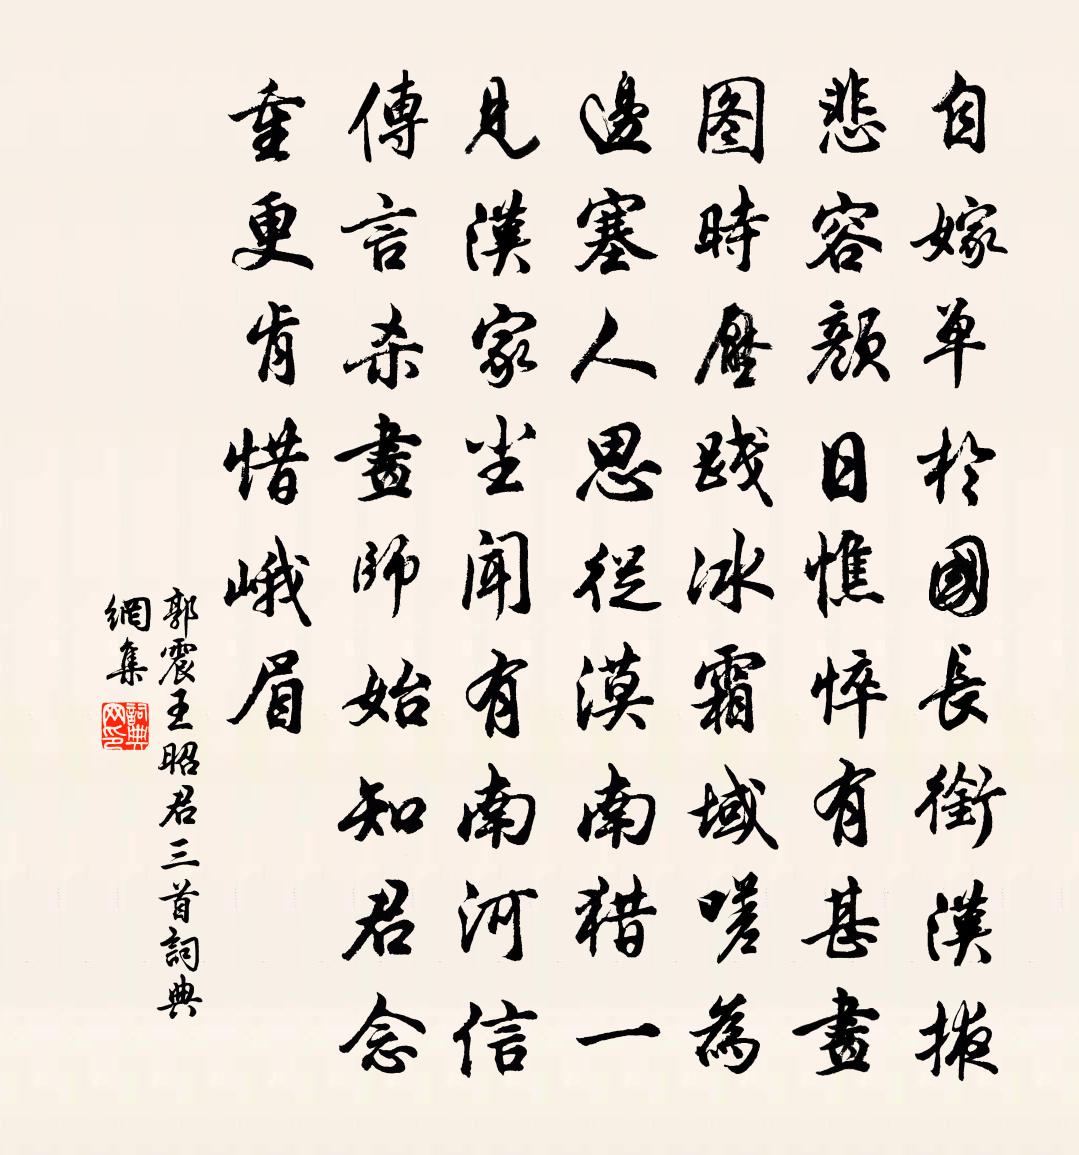 自嫁单於國長銜漢掖
悲容顏日憔悴有甚畫
图時壓踐冰霜域嗟為
邊塞人思從漠南猎一
見漢家尘聞有南河信
傳言杀畫師始知君念
重更肯惜峨眉
郭震王昭君三首詞典
網集
詞典网印